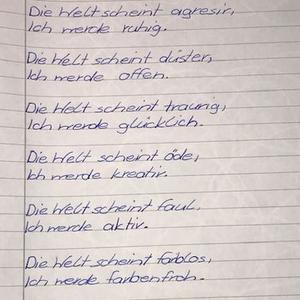 Die Welt scheint agresiv,
Ich werde ruhig.
Die Welt scheint düster,
Ich werde offen.
Die Welt scheint traurig,
Ich werde glücklich.
Die Welt scheint öde,
Ich werde kreativ.
Die Welt scheint faul,
Ich werde aktiv.
Die Welt scheint farblos,
Ich werde farbenfroh.